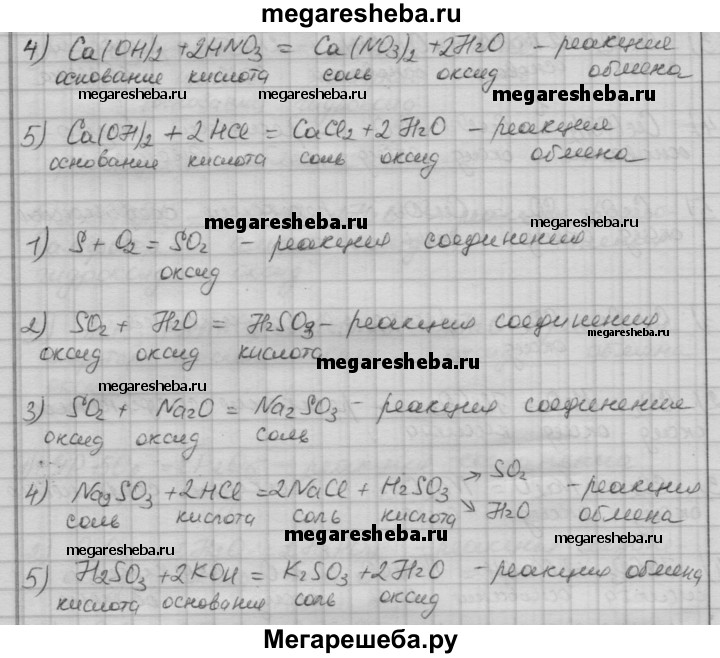 megaresheba.ru
4) Ca(OH)2 + 2HNO3 = Ca(NO3)2 + 2H2O – реакция
основание кислота соль оксид обмена
megaresheba.ru megaresheba.ru megaresheba.ru
5) Ca(OH)2 + 2HCl = CaCl2 + 2H2O – реакция
основание кислота соль оксид обмена
megaresheba.ru megaresheba.ru
1) S + O2 = SO2 – реакция соединения
оксид
2) SO2 + H2O = H2SO3 – реакция соединения
megaresheba.ru
оксид оксид кислота
megaresheba.ru megaresheba.ru
3) SO2 + Na2O = Na2SO3 – реакция соединения
оксид оксид соль
4) Na2SO3 + 2HCl = 2NaCl + H2SO3 → SO2 – реакция
соль кислота соль кислота → H2O обмена
megaresheba.ru megaresheba.ru megaresheba.ru
5) H2SO3 + 2KOH = K2SO3 + 2H2O – реакция обмена
кислота основание соль оксид
Мегарешеба.ру